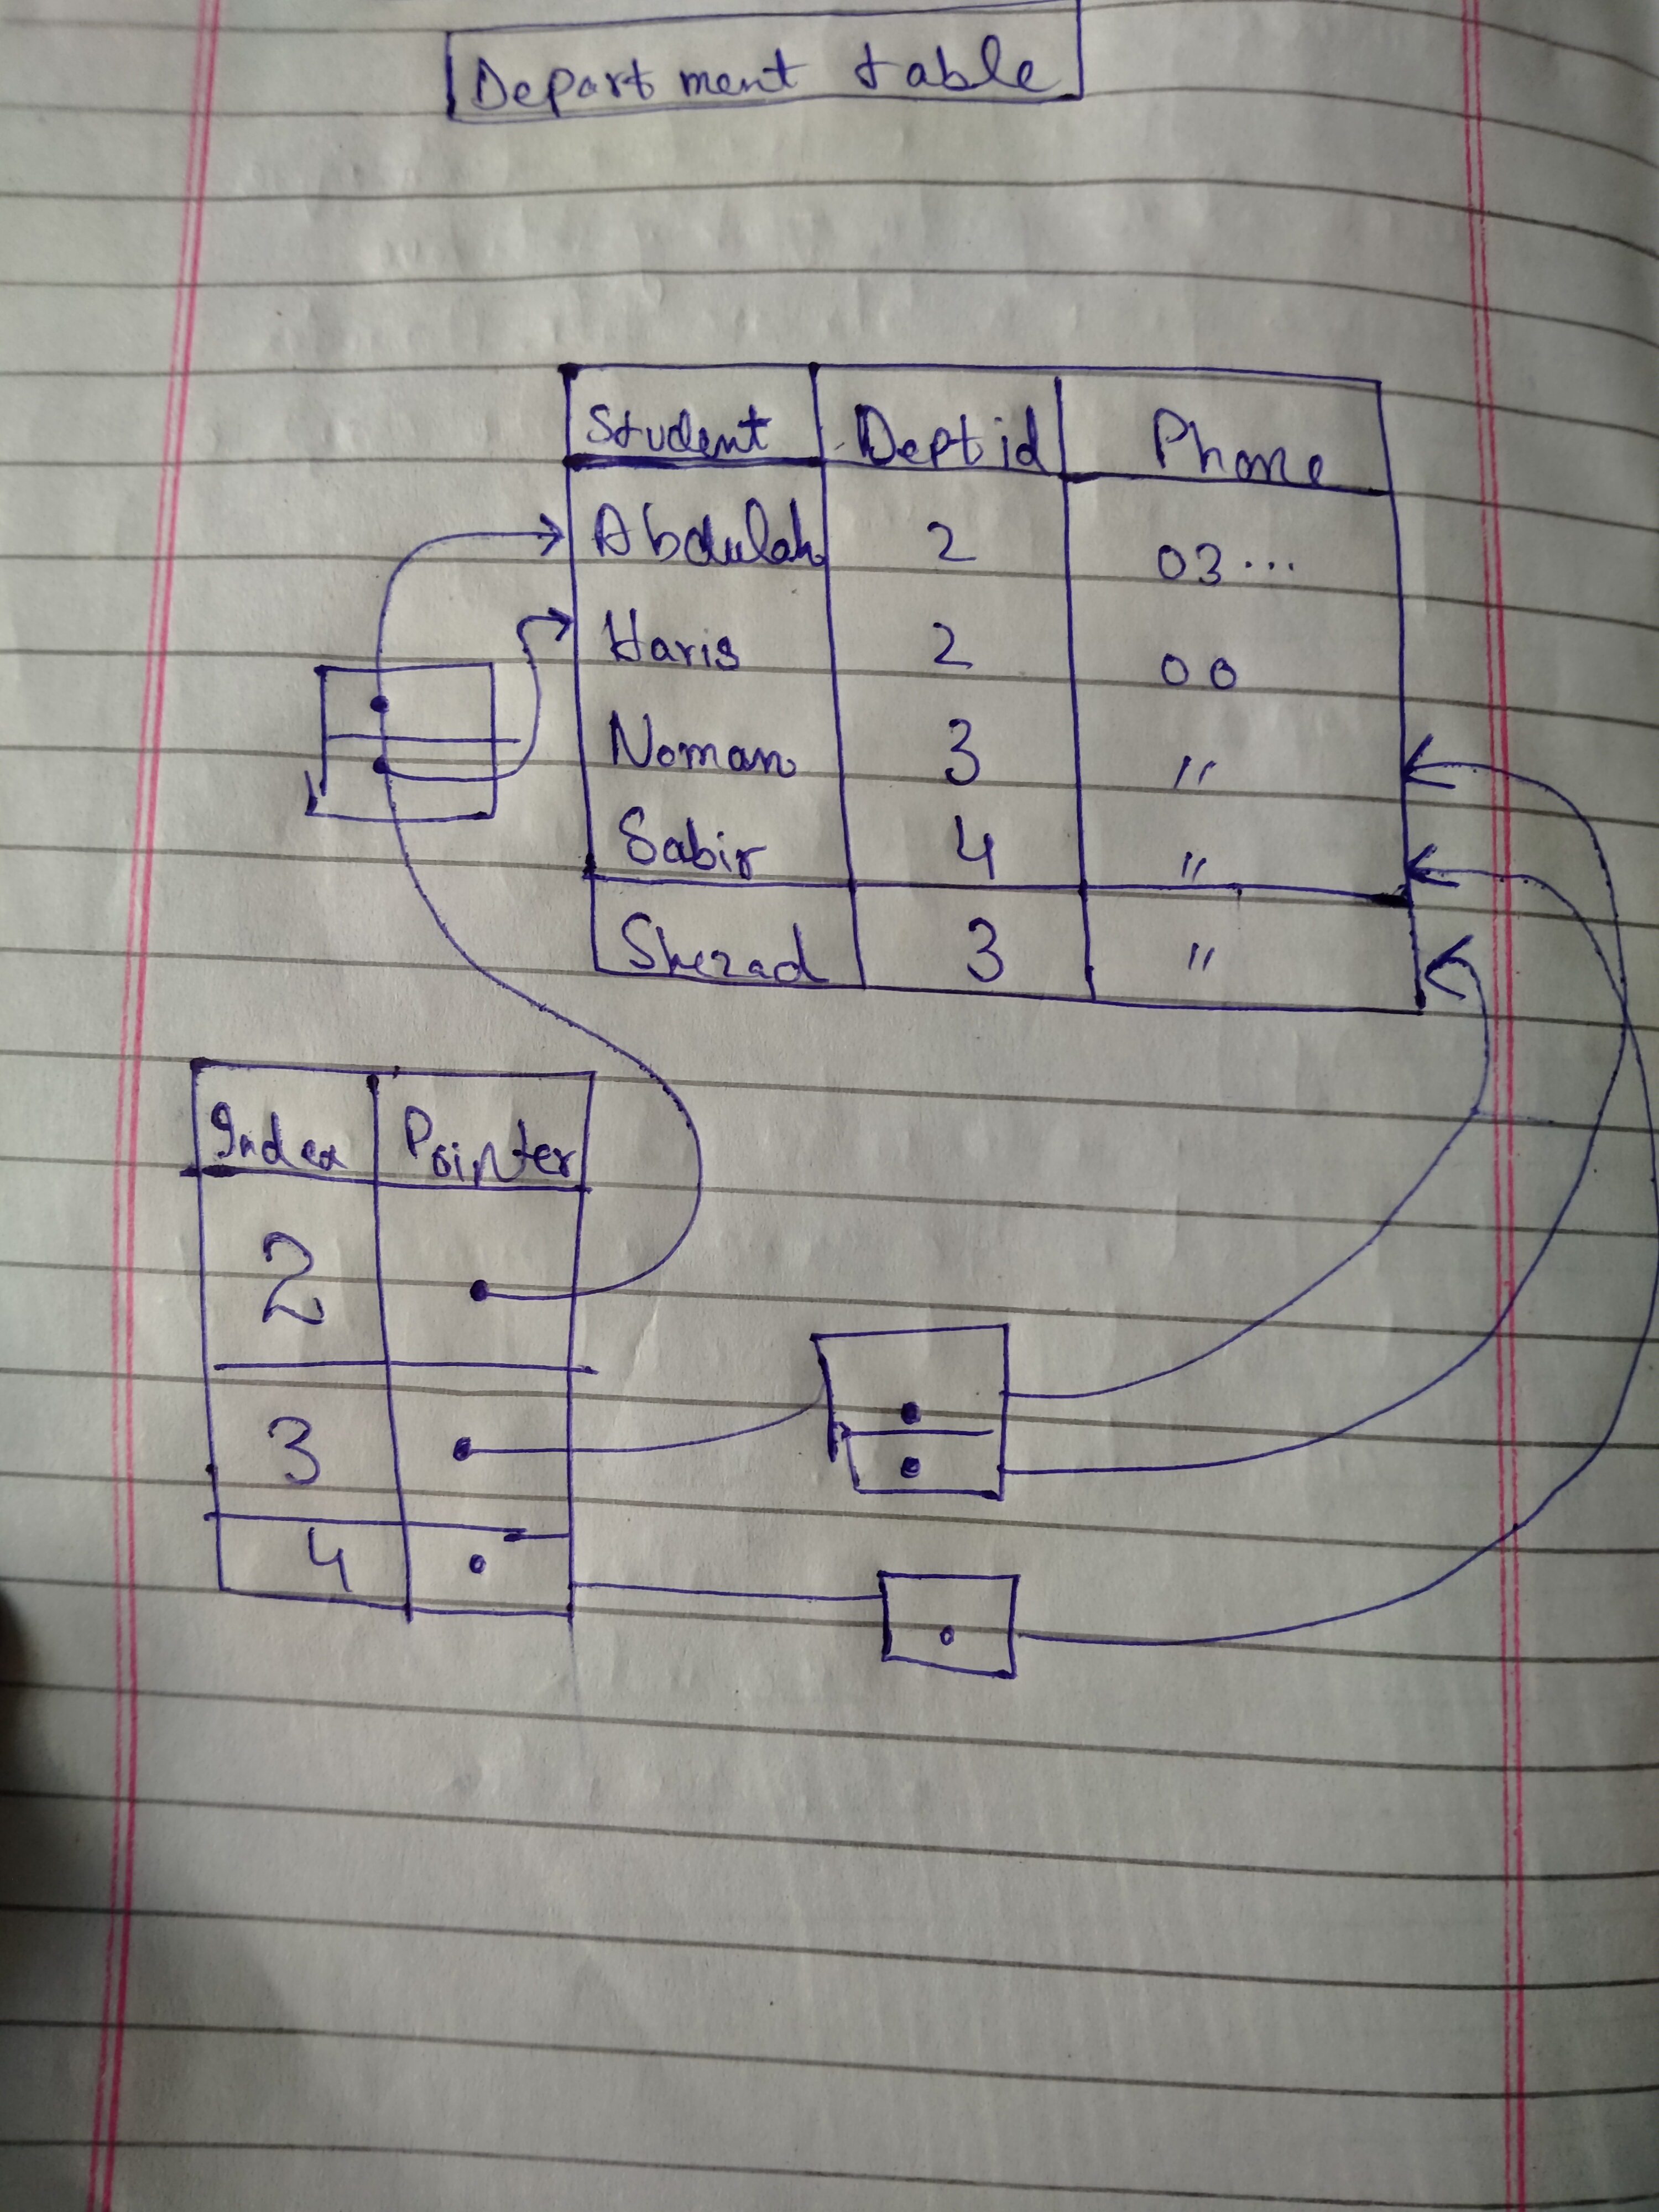 Department table
Student Dept id Phone
Abdulah 2 03...
Haris 2 00
Noman 3 "
Sabir 4 "
Shezad 3 "
Index Pointer
2
3
4